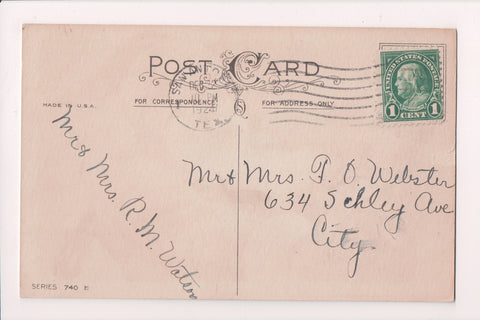 POST CARD
MADE IN U.S.A.
FOR CORRESPONDENCE
FOR ADDRESS ONLY
SAN
DEC
TEX.
UNITED STATES POSTAGE
1 CENT 1
Mr & Mrs. R. M. Watson
Mr & Mrs. P. O. Webster
634 Schley Ave
City.
SERIES 740 E